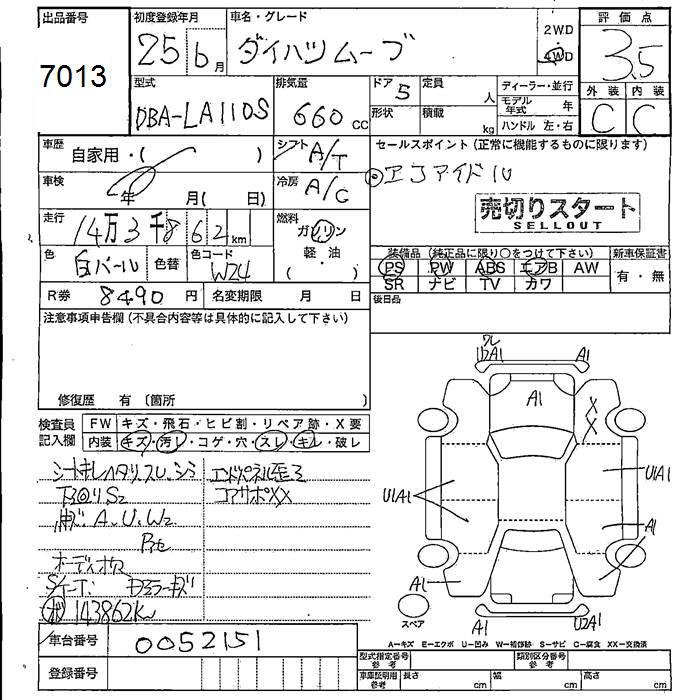 出品番号 初度登録年月 車名・グレード 2WD 評価点
7013 25年6月 ダイハツムーブ 4WD 3.5
型式 排気量 ドア 5 定員 人 ディーラー・並行 外装 内装
DBA-LA110S 660cc 形状 積載 kg モデル年式 年 C C
ハンドル 左・右
車歴 自家用・( ) シフト A/T セールスポイント (正常に機能するものに限ります)
車検 年 月( 日) 冷房 A/C エコアイドル
売切りスタート
SELLOUT
走行 14万3千862km 燃料 ガソリン
軽・油
( )
色 白パール 色替 色コード W24
装備品 (純正品に限り○をつけて下さい) 新車保証書
PS PW ABS エアB AW 有・無
SR ナビ TV カワ
R券 8490円 名変期限 月 日 後日品
注意事項申告欄 (不具合内容等は具体的に記入して下さい)
修復歴 有 〔箇所 〕
検査員記入欄 FW キズ・飛石・ヒビ割・リペア跡・X要
内装 キズ・汚レ・コゲ・穴・スレ・キレ・破レ
シートキレヘタリスレ・シミ エンドパネル歪ミ
下回りS2 コアサポXX
A.U.W2
オーディオ欠
ドアミラーキズ
143862K
車台番号 0052151
登録番号
U2A1 A1
A1
X
X
U1A1 U1A1
A1
A1
スペア A1 U2A1
A−キズ E−エクボ U−凹み W−補修跡 S−サビ C−腐食 XX−交換済
型式指定番号 参考 類別区分番号 参考
車庫証明用 参考 長さ cm 幅 cm 高さ cm